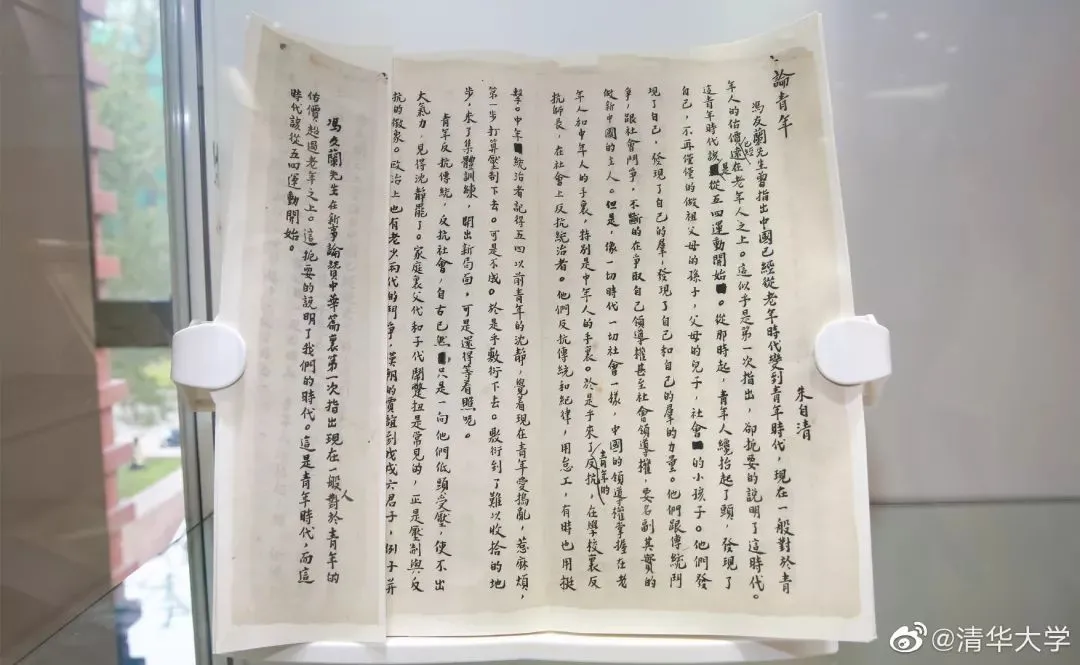 論青年
朱自清
馮友蘭先生曾指出中國已經從老年時代變到青年時代，現在一般對於青
年人的估價已經遠在老年人之上。這似乎是第一次指出，卻扼要的說明了這時代。
這青年時代該是從五四運動開始。從那時起，青年人纔抬起了頭，發現了
自己，不再僅僅的做祖父母的孫子，父母的兒子，社會的小孩子。他們發
現了自己，發現了自己的羣，發現了自己和自己的羣的力量。他們跟傳統鬥
爭，跟社會鬥爭，不斷的在爭取自己領導權甚至社會領導權，要名副其實的
做新中國的主人。但是，像一切時代一切社會一樣，中國的領導權掌握在老
年人和中年人的手裏，特別是中年人的手裏。於是乎來了青年的反抗，在學校裏反
抗師長，在社會上反抗統治者。他們反抗傳統和紀律，用怠工，有時也用挺
擊。中年統治者記得五四以前青年的沈靜，覺着現在青年愛搗亂，惹麻煩，
第一步打算壓制下去。可是不成。於是乎敷衍下去。敷衍到了難以收拾的地
步，來了集體訓練，開出新局面，可是還得等着瞧呢。
青年反抗傳統，反抗社會，自古已然，只是一向他們低頭受壓，使不出
大氣力，見得沈靜罷了。家庭裏父代和子代鬧彆扭是常見的，正是壓制與反
抗的徵象。政治上也有老少兩代的鬥爭，漢朝的賈誼到戊戌六君子，例子並
馮友蘭先生在新事論贊中華篇裏第一次指出現在一般人對於青年的
估價超過老年之上。這扼要的說明了我們的時代。這是青年時代，而這
時代該從五四運動開始。
@清华大学